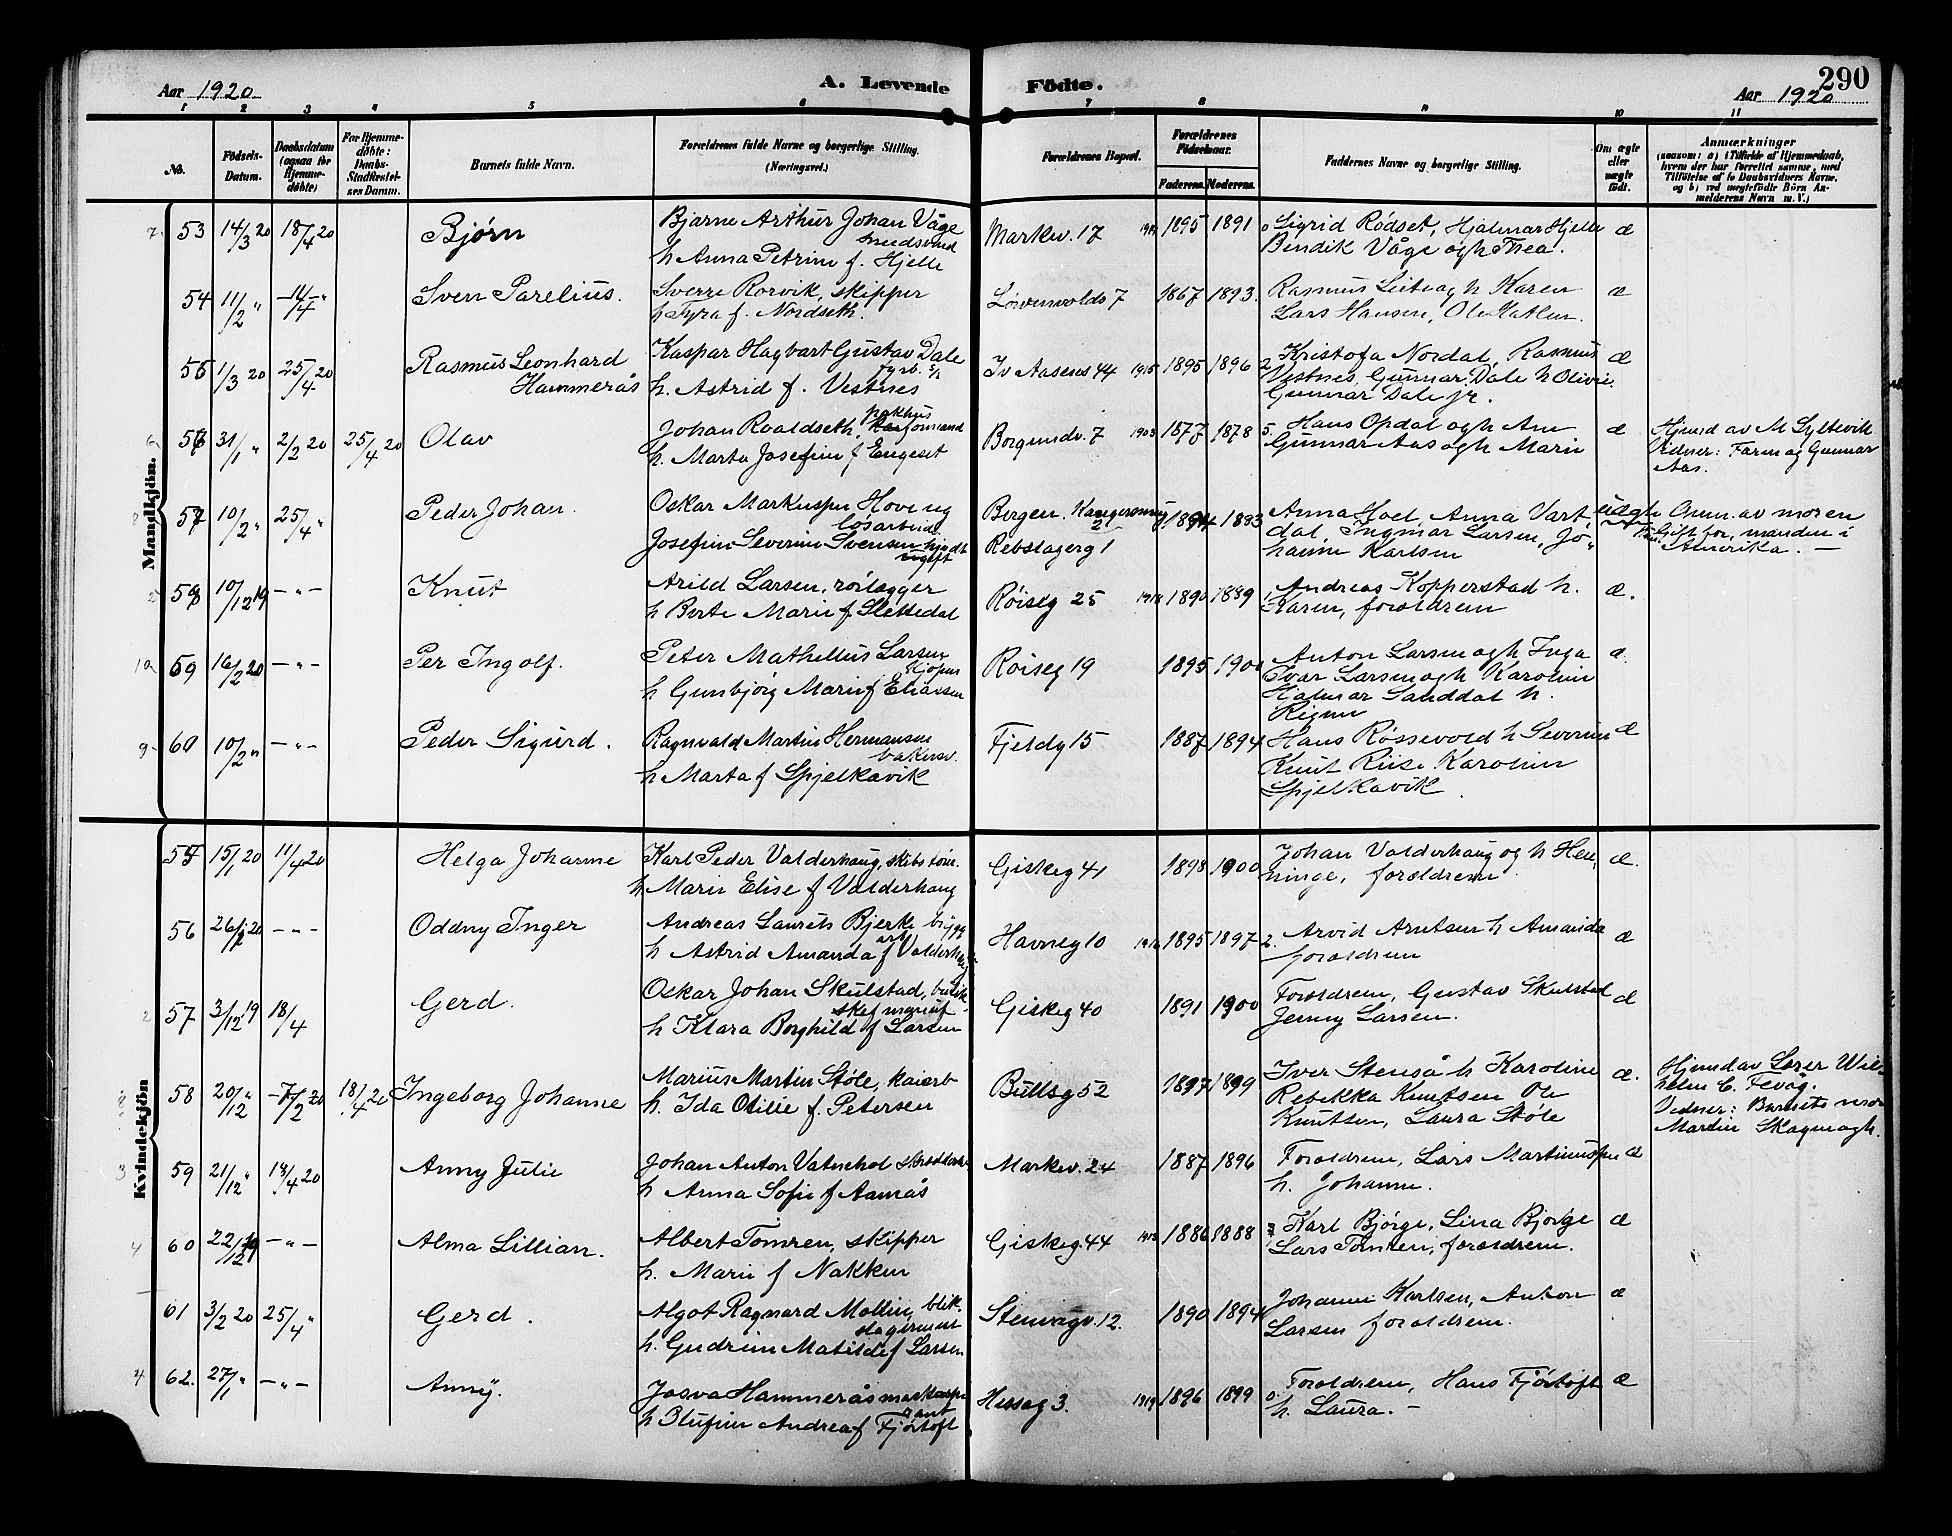 290
Aar 1920
A. Levende
Födte.
Aar 1920
1 2 3 4 5 6 7 8 9 10 11
No.
Födsels-
Datum.
Daabsdatum
(ogsaa for
Hjemme-
döbte)
For Hjemme-
döbte:
Daabs-
Stadfæstel-
ses Datum.
Barnets fulde Navn.
Forældrenes fulde Navne og borgerlige Stilling.
(Næringsvei.)
Forældrenes Bopæl.
Forældrenes
Födselsaar.
Faderens. Moderens.
Faddernes Navne og borgerlige Stilling.
Om ægte
eller
uægte
födt.
Anmærkninger
(saasom: a) i Tilfælde af Hjemmedaab,
hvem der har forrettet samme, med
Tilföielse af to Daabsvidners Navne.
og b) ved uegtefödte Börn An-
melderens Navn m. V.)
Mandkjön.
7 53 14/3 20 18/4 20 Bjørn
Bjarne Arthur Johan Våge
smedsvend
h Anna Petrine f. Hjelle
Markev. 17 1895 1891
0 Sigrid Rødset, Hjalmar Hjelle
Bendik Våge og h Thea.
æ
54 11/2 " 11/4 " Sven Parelius.
Sverre Rørvik, skipper
h Fyra f. Nordseth.
Løvenvolds 7 1867 1893.
Rasmus Leite og h Karen
Lars Hansen, Ole
æ
55 1/3 20 25/4 20 Rasmus Leonhard
Hammerås
Kaspar Hagbart Gustav Dale
fyrb.
h. Astrid f. Vestnes
Iv Aasens 44 1915 1895 1896
2 Kristofa Nordal, Rasmus
Vestnes, Gunnar Dale h Olivie,
Gunnar Dale jr.
æ
6 56 31/1 " 2/2 20 25/4 20 Olav
Johan Roaldseth, pakhus
formand
h. Marta Josefine f Engeset
Borgundv. 7 1903 1877 1878
5. Hans Opdal og h Ane
Gunnar Aas og h Marie
æ
Hjemd av M Syltevik
Vidner: Faren og Gunnar
Aas.
8 57 10/2 " 25/4 " Peder Johan.
Oskar Markussen Hove ug
losarbeid
Josefine Severine Svensen
gift
Bergen.
Rebslagerg 1
1883
Anna Hoel, Anna Vart,
dal, Ingmar Larsen, Jo-
hanne Karlsen
uægte
Anm. av moren
Gift for, manden i
Amerika. —
5 58 10/12 19 -"- Knut
Arild Larsen, rørlægger
h Berte Marie f. Slettedal
Røiseg 25 1918 1890 1889
1 Andreas Kopperstad h.
Karen, forældrene
æ.
10 59 16/2 20 -"- Per Ingolf.
Peter Mathellus Larsen
kjøpm
h Gunbjørg Marie f Eliassen
Røiseg 19 1895 1900
Anton Larsen og h Inga
Ivar Larsen og h Karoline
Hjalmar Sanddal h.
æ.
9 60 10/2 " -"- Peder Sigurd.
Ragnvald Martin Hermansen
bakersv.
h Marta f Spjelkavik
Fjeldg 15 1887 1894
Hans Røssevold h Severine
Knut Riise Karoline
Spjelkavik.
æ
Kvindekjön
55 15/1 20 11/4 20 Helga Johanne
Karl Peder Valderhaug, skibstøm.
h Marie Elise f Valderhaug
Giskeg 41 1898 1900
Johan Valderhaug og h Hen,
ninge, forældrene
æ.
56 26/1 20 -"- Oddny Inger
Andreas Laurits Bjerke bygg
arb
h Astrid Amanda f Valderhaug
Havneg 10 1895 1897
2. Arvid Arntsen h Amanda
forældrene
æ
2 57 3/12 19 18/4 Gerd.
Oskar Johan Skulstad, butik
h Klara Borghild f Larsen
Giskeg 40 1891 1900
Forældrene, Gustav Skulstad
Jenny Larsen.
æ
58 20/12 " 7/2 20 18/4 20 Ingeborg Johanne
Marius Martin Støle, kaiarb
h. Ida Otilie f. Petersen
Bullsg 52 1897 1899
Iver Stenså h Karoline
Rebekka Knutsen Ole
Knutsen, Laura Støle
æ.
Hjemd av Lærer Wil-
helm C. Fevåg.
Vidner: Barnets mor
Martin Skagen og h.
3 59 21/12 " 18/4 20 Anny Julie
Johan Anton Vatnehol skrædder
h Anna Sofie f Aamås
Markev. 24 1887 1896
Forældrene, Lars Martinussen
h. Johanne.
æ
4 60 22/12 19 -"- Alma Lillian.
Albert Tomren, skipper
h. Marie f Nakken
Giskeg. 44 1886 1888
Karl Bjørge, Lina Bjørge
Lars Tomren, forældrene.
æ
61 3/2 20 25/4 " Gerd.
Algot Ragnard Mollin, blik-
slagerment
h. Gudrun Matilde f Larsen
Stenvågv. 12. 1890 1894
Johanne Karlsen, Anton
Larsen forældrene.
æ
4 62. 27/1 " -"- Anny.
Josva Hammerås maskasp
h Olufine Andrea f Fjørtoft
Hessag 3. 1919 1896 1899
0. Forældrene, Hans Fjørtoft
h. Laura. —
æ